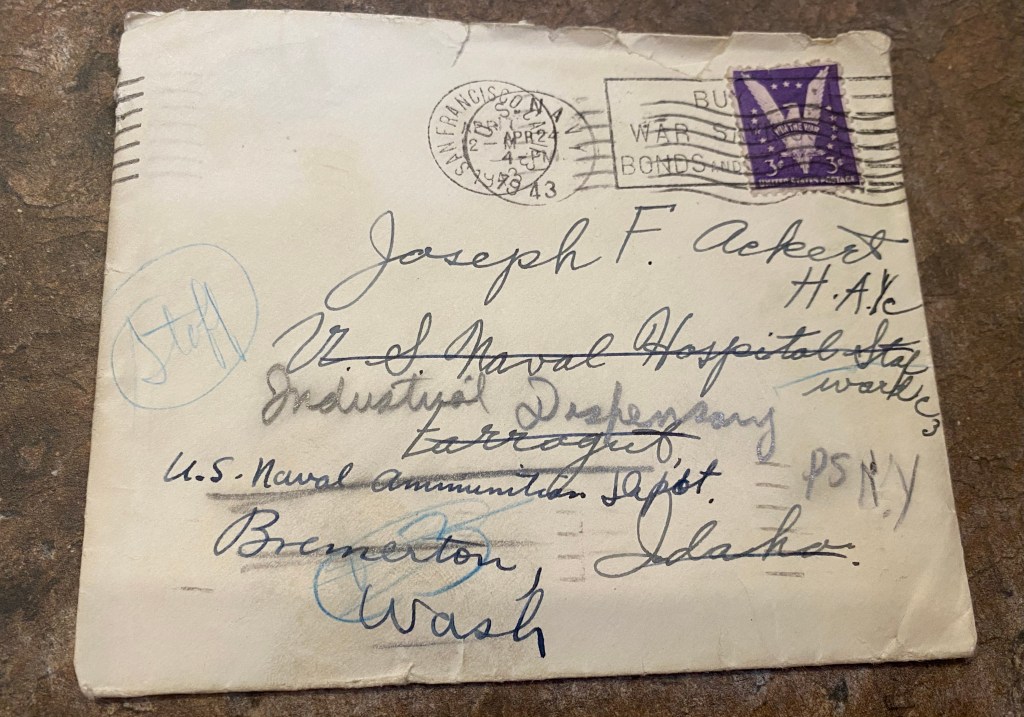 SAN FRANCISCO, CALIF.
APR 24
4 - PM
1943
BUY
WAR
BONDS AND S
FOR THE WAR
3¢ 3¢
UNITED STATES POSTAGE
Joseph F. Ackert
H.A.
Staff
U. S. Naval Hospital Staf
ward
Industrial Dispensary
Farragut,
U.S. Naval Ammunition Depot.
PSNY
Bremerton, Idaho.
Wash